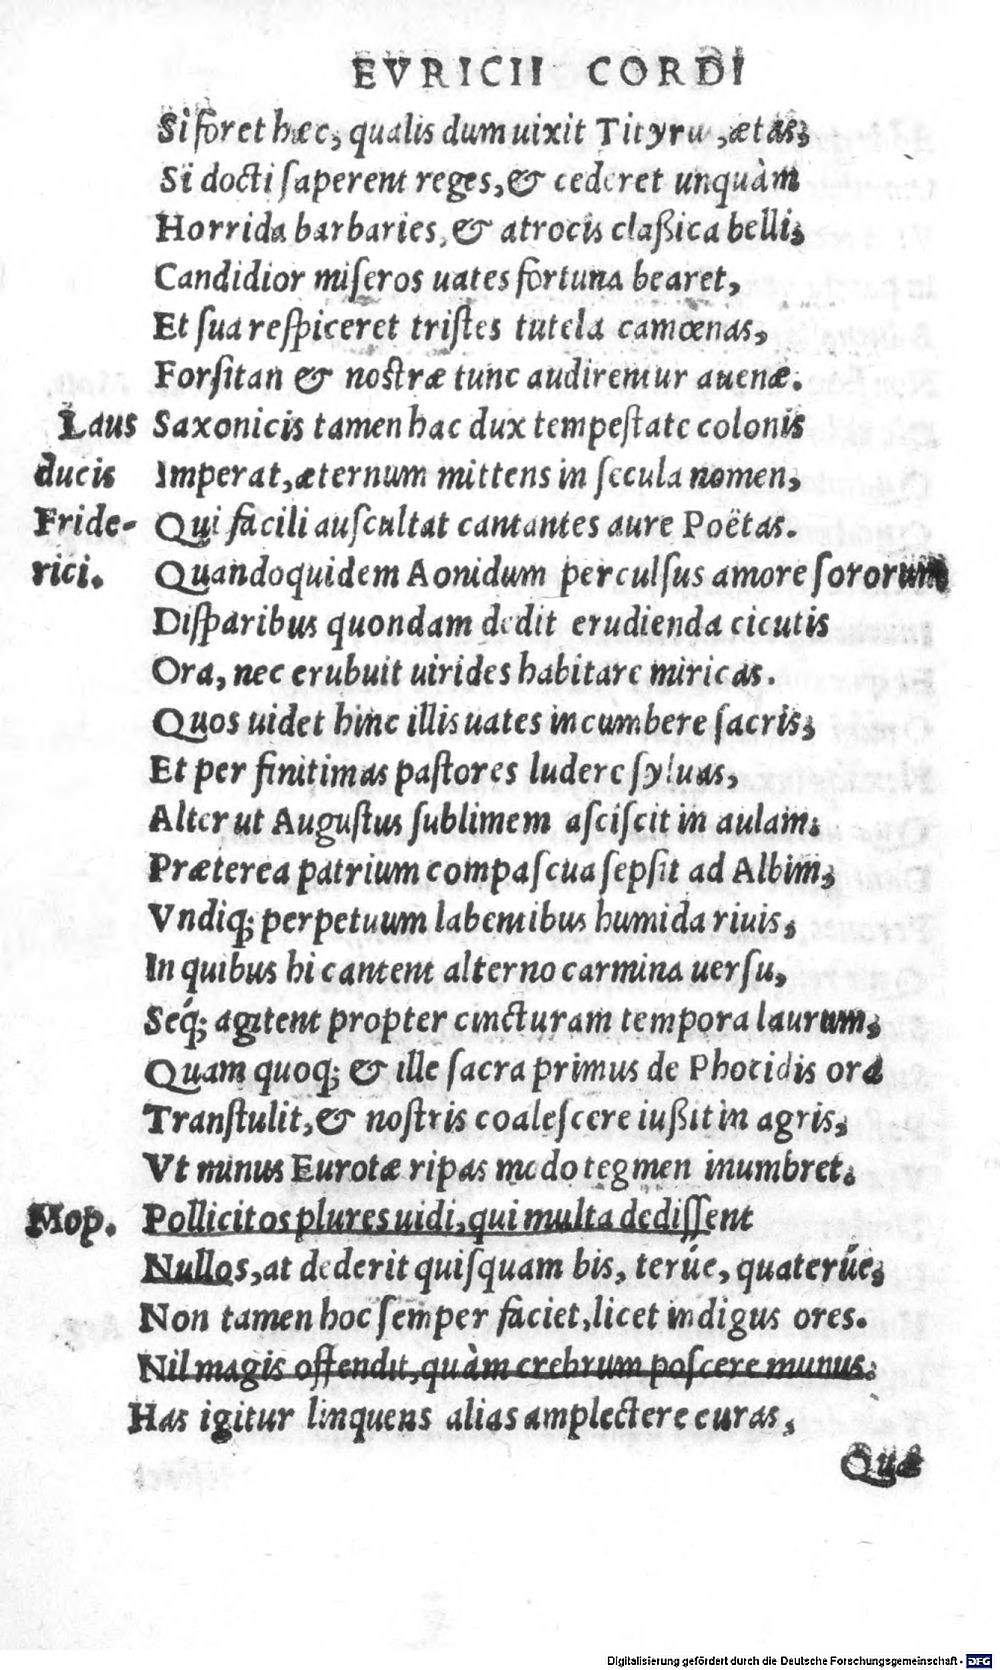 EVRICII CORDI
Si foret hæc, qualis dum uixit Tityru, ætas,
Si docti saperent reges, & cederet unquàm
Horrida barbaries, & atrocis claßica belli,
Candidior miseros uates fortuna bearet,
Et sua respiceret tristes tutela camœnas,
Forsitan & nostræ tunc audirentur auenæ.
Laus Saxonicis tamen hac dux tempestate colonis
ducis Imperat, æternum mittens in secula nomen,
Fride- Qui facili auscultat cantantes aure Poëtas.
rici. Quandoquidem Aonidum perculsus amore sororum
Disparibus quondam dedit erudienda cicutis
Ora, nec erubuit uirides habitare miricas.
Quos uidet hinc illis uates incumbere sacris,
Et per finitimas pastores ludere syluas,
Alter ut Augustus sublimem asciscit in aulam.
Præterea patrium compascua sepsit ad Albim,
Vndiq; perpetuum labentibus humida riuis,
In quibus hi cantent alterno carmina uersu,
Seq́; agitent propter cincturam tempora laurum,
Quam quoq; & ille sacra primus de Phocidis ora
Transtulit, & nostris coalescere iußit in agris,
Vt minus Eurotæ ripas modo tegmen inumbret.
Mop. Pollicitos plures uidi, qui multa dedissent
Nullos, at dederit quisquam bis, terúe, quaterúe,
Non tamen hoc semper faciet, licet indigus ores.
Nil magis offendit, quàm crebrum poscere munus.
Has igitur linquens alias amplectere curas,
Quæ
Digitalisierung gefördert durch die Deutsche Forschungsgemeinschaft - DFG